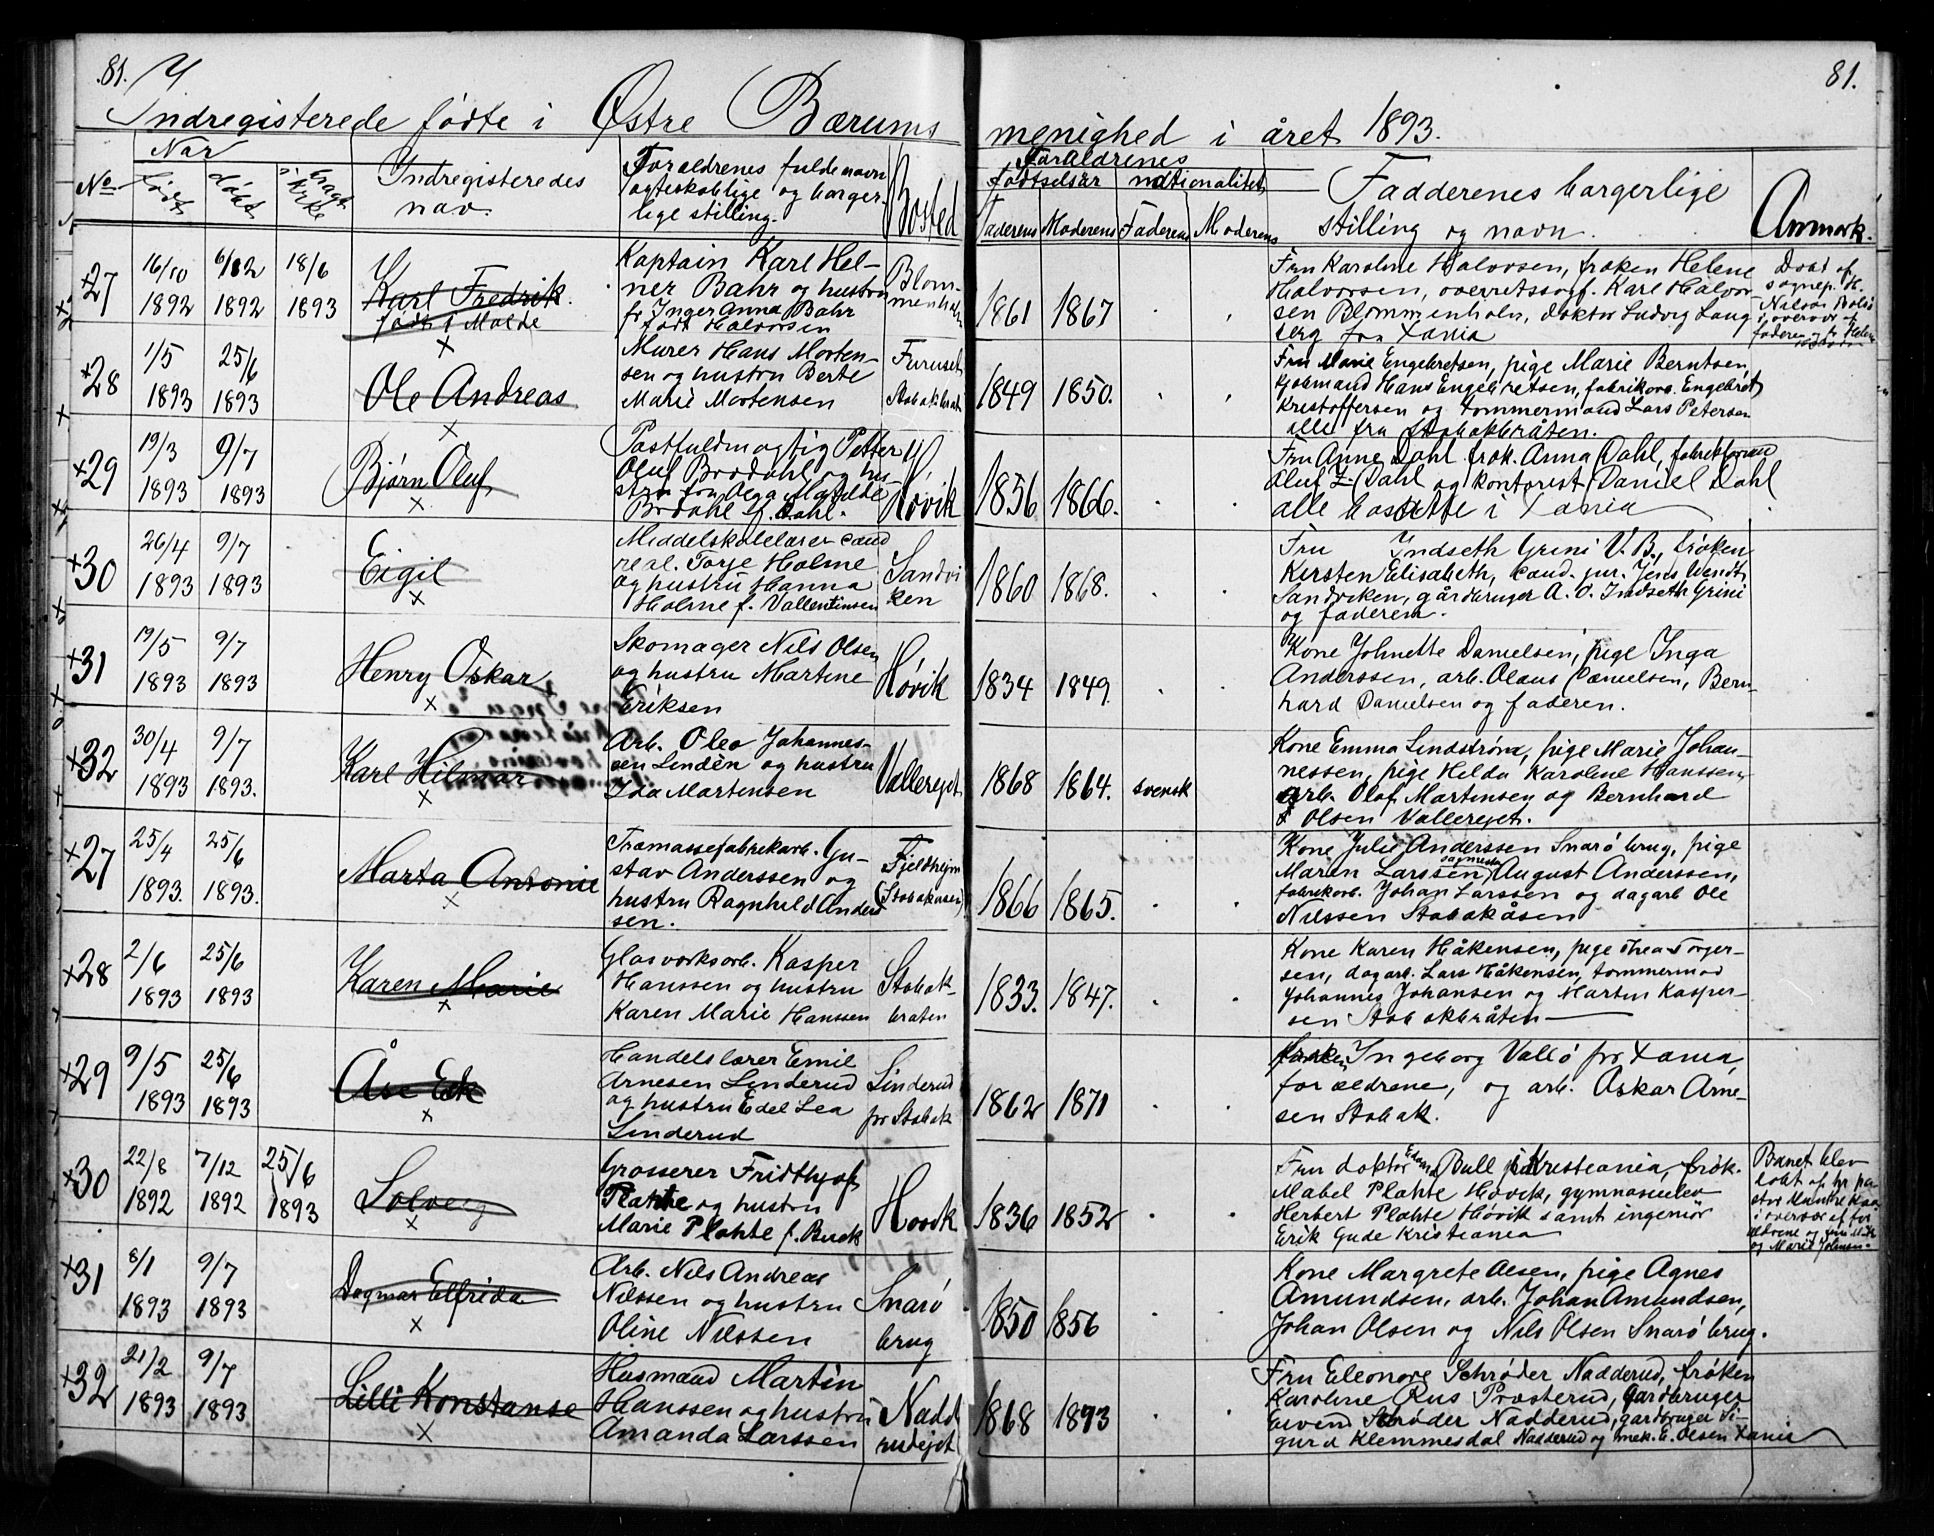 81.
81.
Indregisterede fødte i Østre Bærums menighed i året 1893.
No
Når
født
døbt
bragt i kirke
Indregisteredes navn.
Forældrenes fulde navn
ægteskablige og borger-
lige stilling.
Bosted
Forældrenes
Fødselsår
nationalitet
Faderens
Moderens
Faderens
Moderens
Fadderenes borgerlige
stilling og navn.
Anmærk.
×27
16/10 1892
6/12 1892
18/6 1893
Karl Fredrik
født i Molde
×
Kaptain Karl Hel-
ner Bahr og hustru
fr Inger Anna Bahr
født Halvorsen
Blom-
menholm
1861
1867
Fru Karoline Halvorsen, frøken Helene
Halvorsen, overretssagf. Karl Halvor
sen Blommenholm, doktor Ludvig Laug
berg fra Xania
Døbt af
sognep. H.
Nilsen
i overvær af
faderen og fr Helene
×28
1/5 1893
25/6 1893
Ole Andreas
×
Murer Hans Morten-
sen og hustru Berte
Marie Mortensen
Furuset
Stabækbråt
1849
1850.
Fru Marie Engebretsen, pige Marie Berntsen,
Hans Engebretsen, fabrikarb. Engebret
Kristoffersen og tømmermand Lars Petersen
alle fra Stabækbråten.
×29
19/3 1893
9/7 1893
Bjørn Oluf
×
Postfuldmægtig Petter
Oluf Brodahl og hu-
stru fru Aega Matilde
Brodahl f. Dahl.
Høvik
1856
1866.
Fru Anne Dahl frøk. Anna Dahl,
Oluf Z. Dahl og kontorist Daniel Dahl
alle bosatte i Xania
×30
26/4 1893
9/7 1893
Eigil
×
Middelskolelærer cand
real. Torje Holme
og hustru Hanna
Holme f. Vallentinsen
Sandvi
ken
1860
1868.
Fru Indseth Grini V. B., frøken
Kirsten Elisabeth, cand. jur. Jens Wendt
Sandviken, gårdbruger A. O. Indseth Grini
og faderen.
×31
19/5 1893
9/7 1893
Henry Oskar
×
Skomager Nils Olsen
og hustru Martine
Eriksen
Høvik
1834
1849.
Kone Johnette Danielsen, pige Inga
Anderssen, arb. Olaus Danielsen, Bern-
hard Danielsen og faderen.
×32
30/4 1893
9/7 1893.
Karl Hilmar
×
Arb. Oleo Johannes-
sen Lindèn og hustru
Ida Martinsen
Vallerejet
1868
1864.
svensk
Kone Emma Lindstrøm, pige Marie Johan-
nessen, pige Hilda Karoline Hanssen,
arb. Olaf Martinsen og Bernhard
Olsen Vallerejet.
×27
25/4 1893.
25/6 1893.
Marta Antonie
×
Træmassefabrikarb. Gu-
stav Anderssen og
hustru Ragnhild Anders
sen.
Fjeldhejm
(Stabækåsen)
1866
1865.
Kone Julie Anderssen Snarø brug, pige
Maren Larssen, sagmester August Anderssen,
fabrikarb. Johan Larssen og dagarb Ole
Nilssen Stabækåsen
×28
2/6 1893
25/6 1893
Karen Marie
×
Glasværksarb. Kasper
Hanssen og hustru
Karen Marie Hanssen
Stabæk-
bråten
1833.
1847.
Kone Karen Håkensen, pige Thea Torger-
sen, dagarb. Lars Håkensen, tømmermad
Johannes Johansen og Martin Kasper-
sen Stabækbråten
×29
9/5 1893
25/6 1893
Åse Eek
×
Handelslærer Emil
Arnesen Linderud
og hustru Edel Lea
Linderud
Linderud
pr Stabæk
1862
1871
frøken Ingeborg Vallø fr. Xania,
forældrene, og arb. Oskar Arne-
sen Stabæk.
×30
22/8 1892
7/12 1892
25/6 1893
Solveig
×
Grosserer Fridthjof
Plahte og hustru
Marie Plahte f. Buck
Høvik
1836
1852
Fru doktor Edvard Bull i Kristiania, frøk.
Mabel Plahte Høvik, gymnasielev
Herbert Plahte Høvik samt ingeniør
Erik Gude Kristiania
Barnet blev
døbt af hr pa-
stor
i overvær af for
ældrene og
og Marie Johnsen.
×31
8/1 1893
9/7 1893
Dagmar Elfrida
×
Arb. Nils Andreas
Nilssen og hustru
Oline Nilssen
Snarø
brug
1850
1856
Kone Margrete Olsen, pige Agnes
Amundsen, arb. Johan Amundsen,
Johan Olsen og Nils Olsen Snarø brug.
×32
21/2 1893
9/7 1893
Lilli Konstanse
×
Husmand Martin
Hanssen og hustru
Amanda Larssen
Nadde
rudejet
1868
1893
Fru Eleonore Schrøder Nadderud, frøken
Karoline Rus Presterud, gardbruger
Eivind Schrøder Nadderud, gardbruger Si-
gurd Klemmesdal Nadderud og mek. E. Olsen Xania